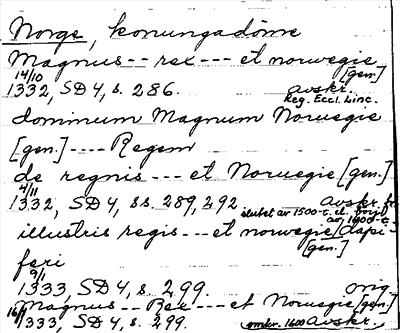 Norge, konungadöme
Magnus -- rex --- et norwegie
[gen.]
14/10
1332, SD 4, s. 286. avskr.
Reg. Eccl. Linc.
dominum Magnum Noruegie
[gen.] ---- Regem
de regnis --- et Noruegie [gen.]
4/11
1332, SD 4, ss. 289, 292 Avskr. fr.
slutet av 1500-t. el. början
av 1600-t.
illustris regis --- et norwegie dapi-
[gen.]
feri
9/1
1333, SD 4, s. 299. orig.
Magnus -- Rex --- et Noruegie [gen.]
16/1
1333, SD 4, s. 299. omkr. 1600 Avskr.